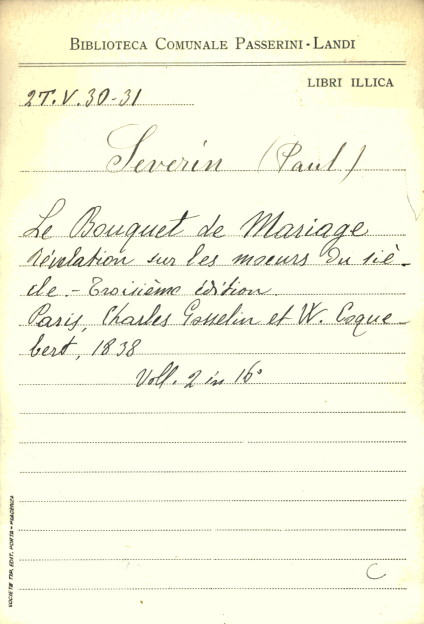 BIBLIOTECA COMUNALE PASSERINI-LANDI
LIBRI ILLICA
2T.V.30-31
Severin (Paul)
Le Bouquet de Mariage
Révélation sur les moeurs du siè-
cle. - Troisième édition.
Paris, Charles Gosselin et W. Coque-
bert, 1838
Voll. 2 in 16°
SOCIETÀ TIP. EDIT. PORTA - PIACENZA
C